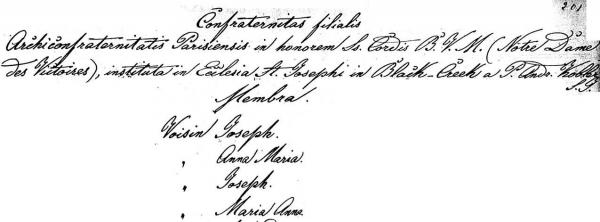 201
Confraternitas filialis
Archiconfraternitatis Parisiensis in honorem Ss. Cordis B. V. M. (Notre Dame
des Victoires), instituta in Eclesia St. Josephi in Black-Creek a P. Andr.
S.J.
Membra.
Voisin Joseph.
" Anna Maria.
" Joseph.
" Maria Anna